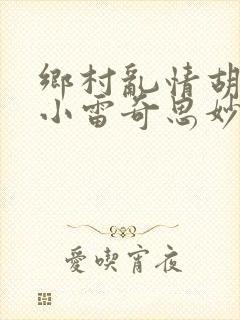 鄉村亂情胡
小雷奇思妙
愛喫宵夜